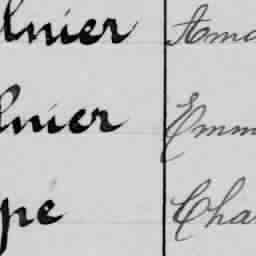 lnier Ama
lnier Emm
pé Cha